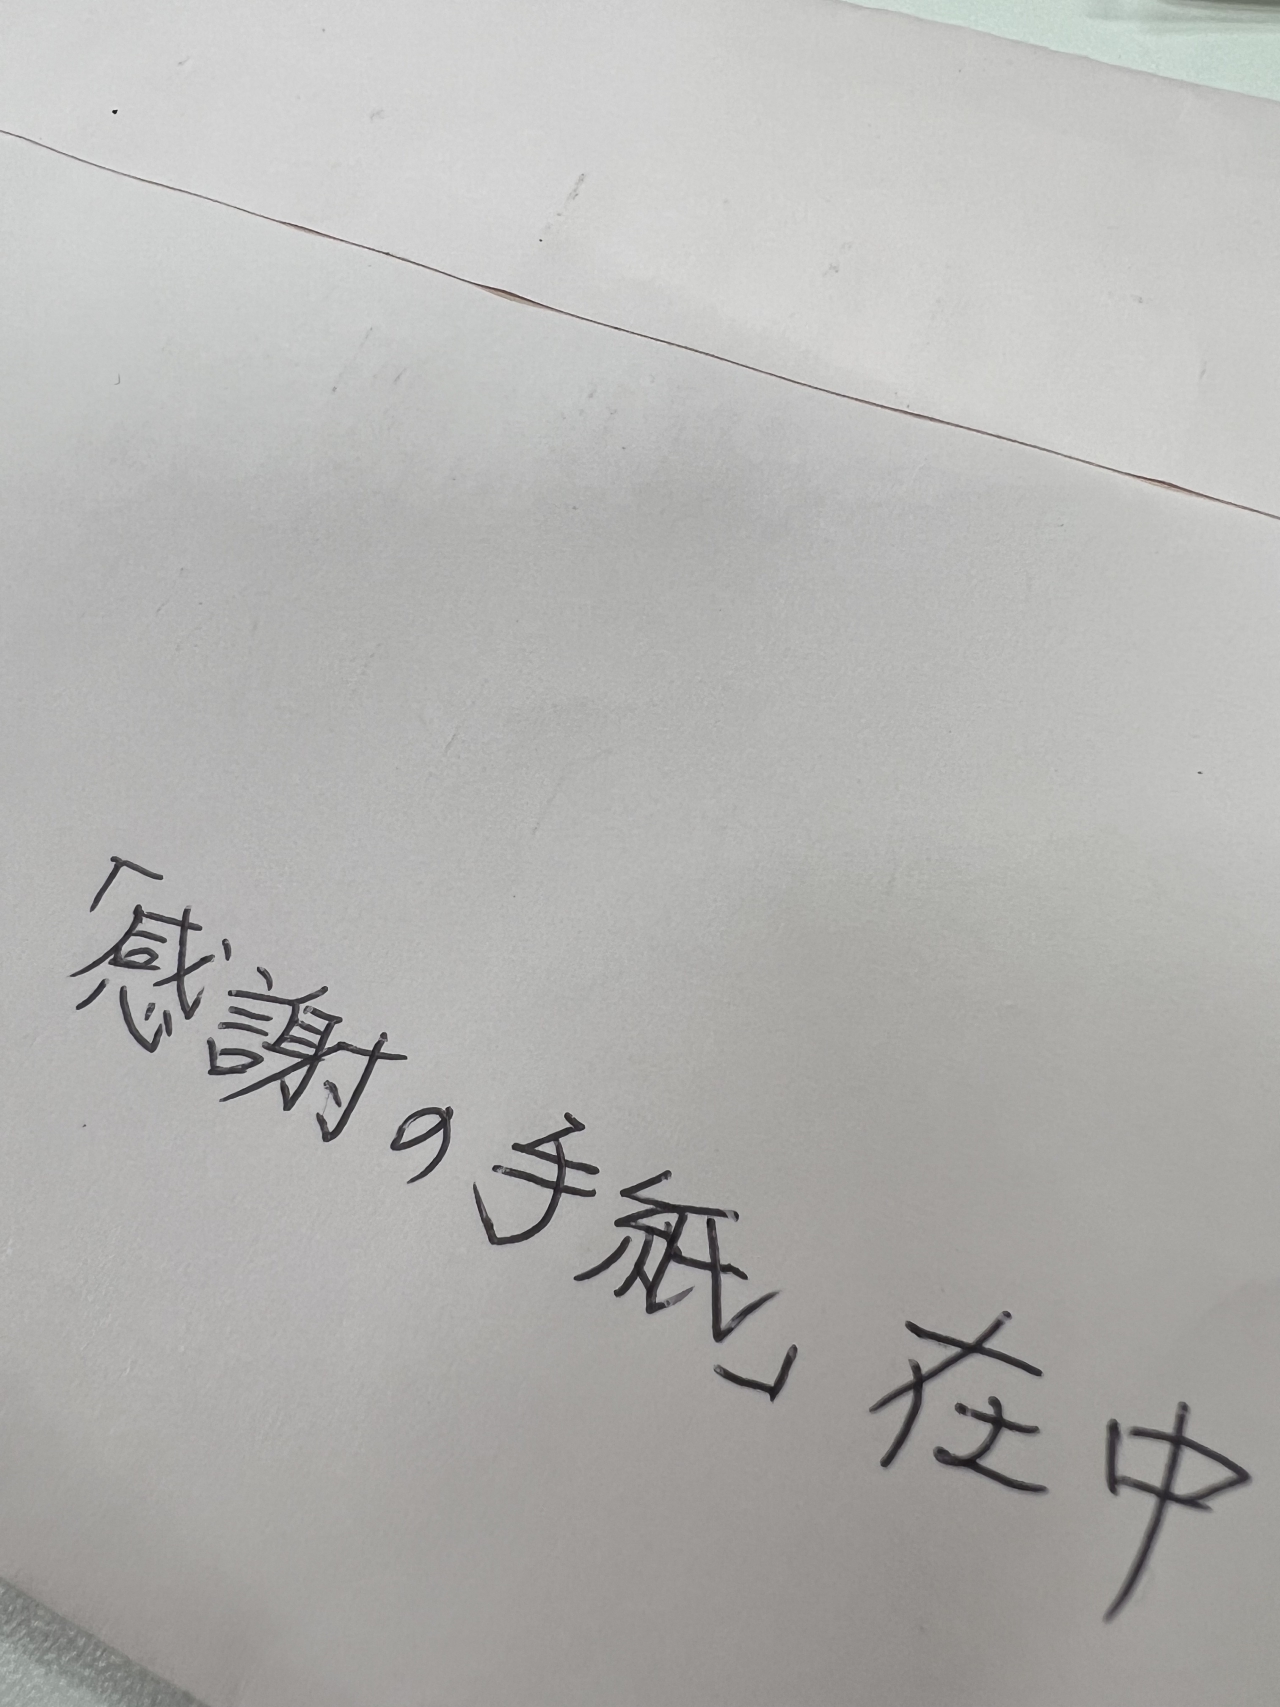 「感謝の手紙」在中